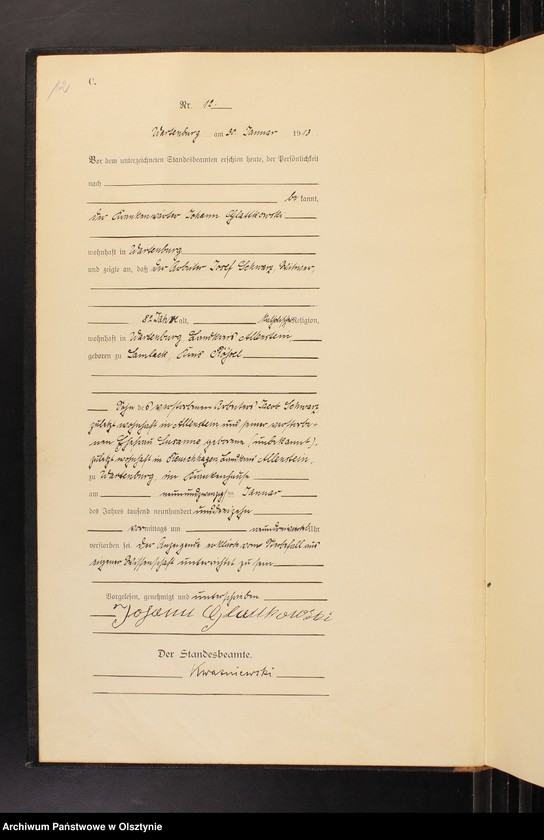 12
C.
Nr. 12.
Wartenburg am 30. Januar 1913
Vor dem unterzeichneten Standesbeamten erschien heute, der Persönlichkeit
nach
be kannt,
der Krankenwärter Johann Glattkowski
wohnhaft in Wartenburg
und zeigte an, daß der Arbeiter Josef Schwarz, Witwer,
82 Jahre alt, katholischer Religion,
wohnhaft in Wartenburg, Landkreis Allenstein
geboren zu Samlack, Kreis Rößel
Sohn des verstorbenen Arbeiters Jacob Schwarz
zuletzt wohnhaft in Allenstein und seiner verstorbe-
nen Ehefrau Susanna geborene (unbekannt),
zuletzt wohnhaft in Landkreis Allenstein,
zu Wartenburg, im Krankenhause
am neunundzwanzigsten Januar
des Jahres tausend neunhundert und dreizehn
vormittags um Uhr
verstorben sei. Der Anzeigende erklärte vom Sterbefall aus
eigener Wissenschaft unterrichtet zu sein
Vorgelesen, genehmigt und unterschrieben
Johann Glattkowski
Der Standesbeamte.
Kwasniewski
Archiwum Państwowe w Olsztynie